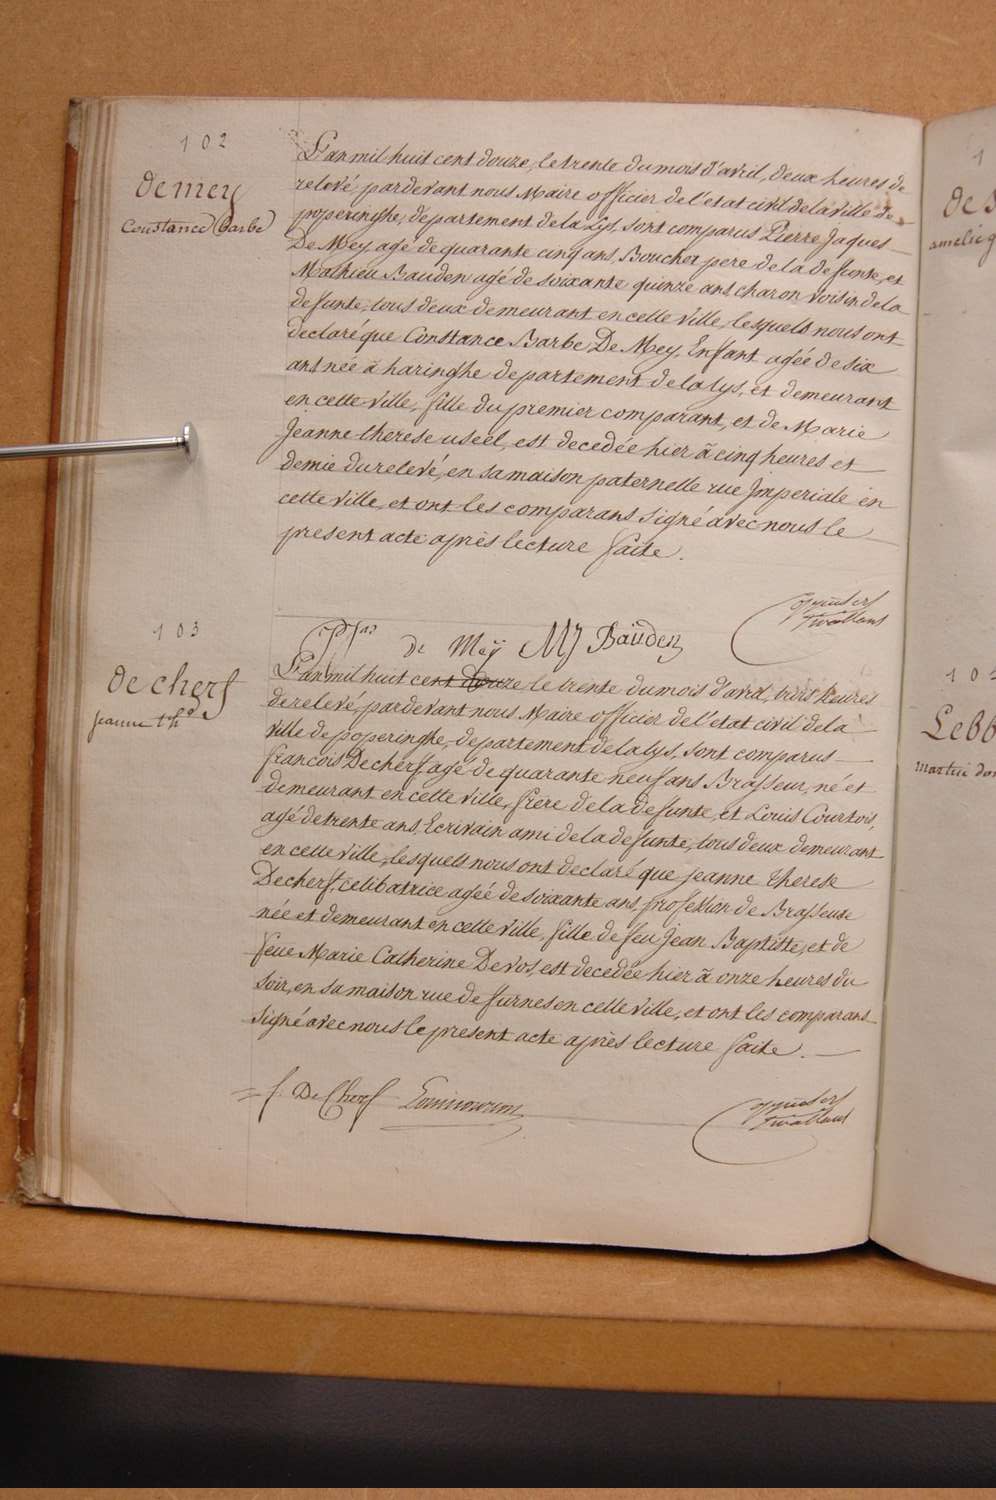 102
De mey
Constance Barbe
L'an mil huit cent douze, le trente du mois d'avril, deux heures de
relevé, pardevant nous Maire officier de l'etat civil de la ville de
poperinghe, departement de la Lys, sont comparus Pierre Jaques
De Mey agé de quarante cinq ans, Boucher pere de la defunte, et
Mathieu Bauden agé de soixante quinze ans charon voisin de la
defunte, tous deux demeurant en cette ville, lesquels nous ont
declaré que Constance Barbe De Mey, Enfant agée de six
ans née à haringhe departement de la lys, et demeurant
en cette ville, fille du premier comparant, et de Marie
Jeanne therese useel, est decedée hier à cinq heures et
demie du relevé, en sa maison paternelle rue Imperiale en
cette ville, et ont les comparans signé avec nous le
present acte après lecture faite.
de Meÿ MJ Baüden
103
De cherf
jeanne th.
L'an mil huit cent douze le trente du mois d'avril, trois heures
de relevé, pardevant nous Maire officier de l'etat civil de la
ville de poperinghe, departement de la lys, sont comparus
francois Decherf agé de quarante neuf ans Brasseur, né et
demeurant en cette ville, frere de la defunte, et Louis Courtois,
agé de trente ans, Ecrivain ami de la defunte, tous deux demeurant
en cette ville, lesquels nous ont declaré que jeanne therese
Decherf, celibatrice agéé de soixante ans, profession de Brasseuse
née et demeurant en cette ville, fille de feu Jean Baptiste, et de
feue Marie Catherine Devos, est decedée hier à onze heures du
soir, en sa maison rue de furnes en cette ville, et ont les comparans
signé avec nous le present acte après lecture faite.
f. De Cherf
De
amelie
10
Lebb
martin